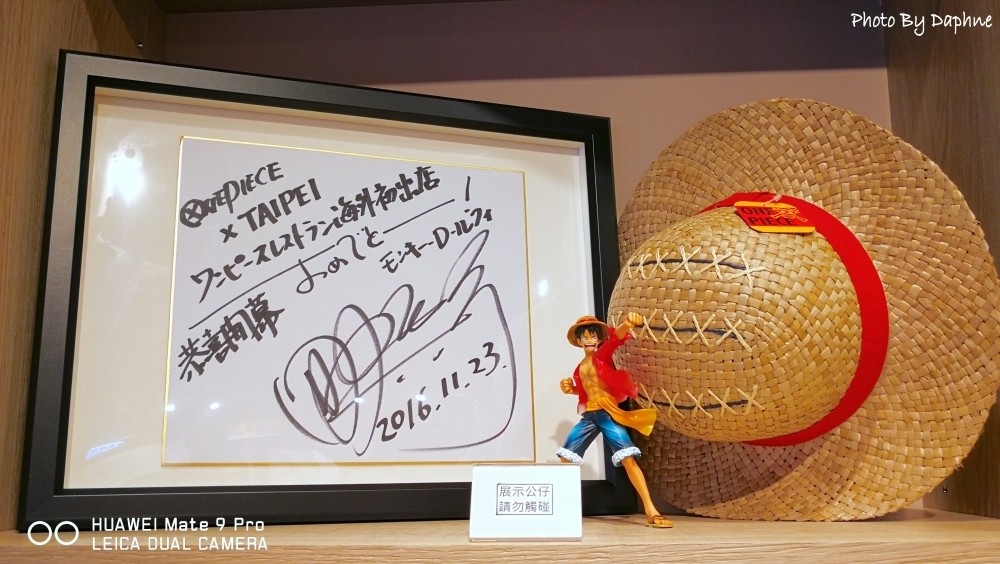 Photo By Daphne
ONE PIECE
× TAIPEI
ワンピースレストラン海外初出店
おめでとーーー！
モンキー・D・ルフィ
恭喜開幕
2016.11.23.
ONE
PIECE
展示公仔
請勿觸碰
HUAWEI Mate 9 Pro
LEICA DUAL CAMERA